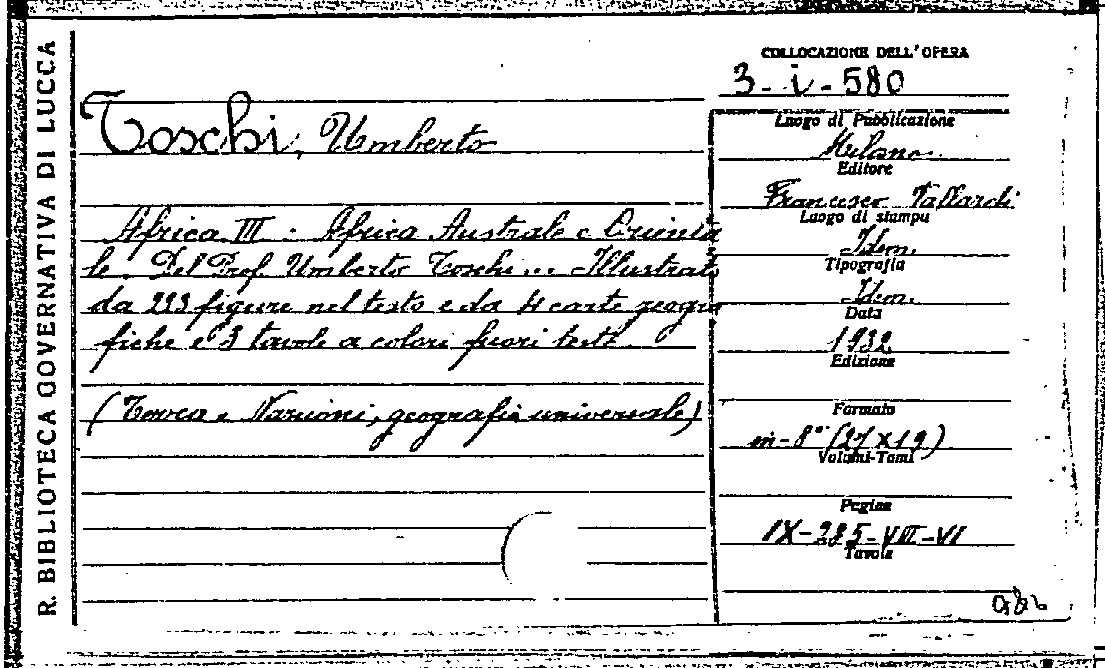 R. BIBLIOTECA GOVERNATIVA DI LUCCA
COLLOCAZIONE DELL'OPERA
3-i-580
Toschi, Umberto
Africa III - Africa Australe e Orienta
le. Del Prof. Umberto Toschi... Illustrato
da 293 figure nel testo e da 4 carte geogra
fiche e 3 tavole a colori fuori testo
(Terra e Nazioni, geografia universale)
Luogo di Pubblicazione
Milano.
Editore
Francesco Vallardi
Luogo di stampa
Idem.
Tipografia
Idem.
Data
1932
Edizione
Formato
in-8° (27x19)
Volumi-Tomi
Pagine
IX-285-VIII-VI
Tavole